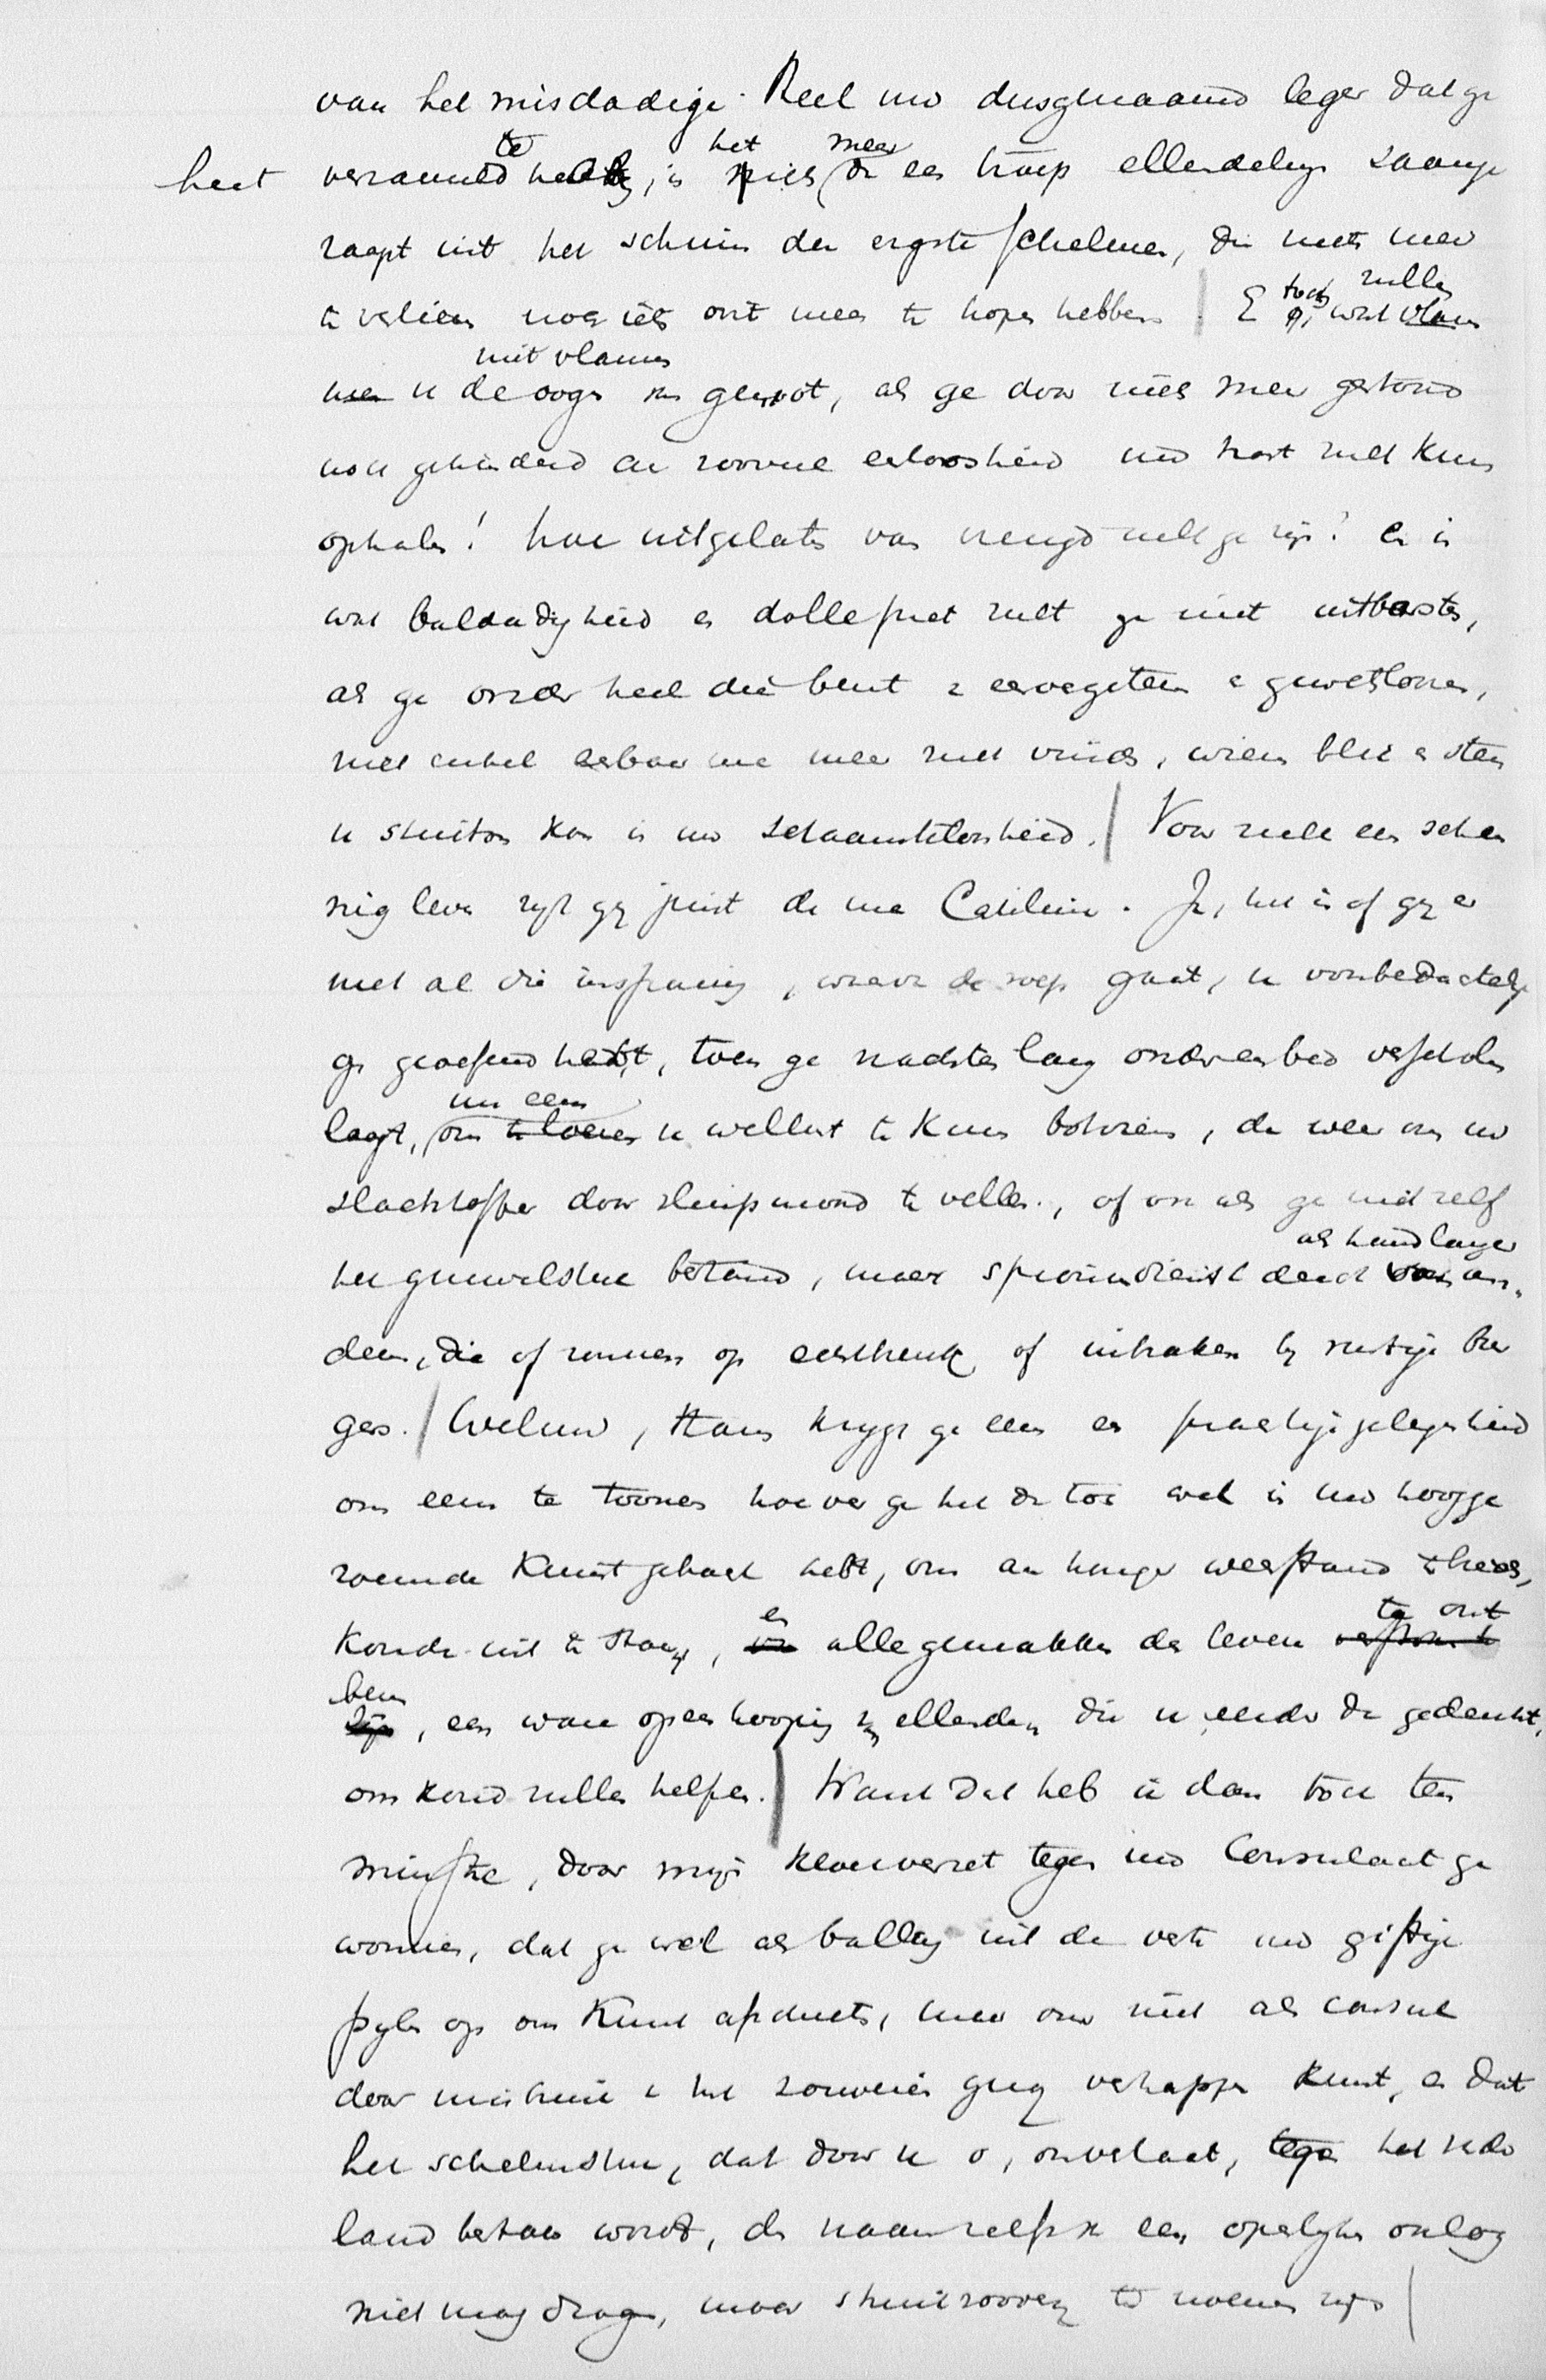 van het misdadige. Heel uw dusgenaamd leger dat ge
te het meer
hect verzameld hebt, is niets dan een troep ellendelingen saamge
raapt uit het schuim der ergste schelmen, die niets meer
toch zullen
te verliezen noch iets ooit meer te hopen hebben | En wat vlam
met vlammen
men u de oogen van genot, als ge door niets meer gestoord
noch gehinderd aan zooveel eerloosheid uw hart zult kunnen
ophalen! hoe uitgelaten van vreugd zult ge zijn! en in
wat baldadigheid en dolle pret zult ge niet uitbarsten,
als ge onder heel die bent
niet enkel eerbaar me meer zult vinden, wiens blik en stem
u stuiten kan in uw schaamteloosheid. | Voor zulk een schan
nig leven zijt gij juist de man Catilina. Ja, het is of gij er
met al die inspanning, waarvan de roep gaat, u voorbedachtelijk
op geoefend hebt, toen ge nachten lang onder een bed verscholen
nu eens
lagt, om te loeren u wellust te kunnen botvieren, dan weer om uw
slachtoffer door sluipmoord te velle, of ook als ge niet zelf
als handlanger
het gruwelstuk bestond, maar spionnendienst deed van an-
deren, die of zinnen op echtbreuk of inbraken bij rustige bur
gers. | Welnu, thans krijgt ge eens een prachtige gelegenheid
om eens te toonen hoe ver ge het er toe wel in uw hoogge
roemde kunst gebracht hebt, om aan honger weerstand te bieden,
en te ont
koude uit te staan, alle gemakken des levens
beren
, een ware opeenhooping van ellenden die u eerder dan ge denkt,
om koud zullen helpen. | Want dat heb ik dan toch ten
minste, door mijn kloek verzet tegen uw Consulaat ge
wonnen, dat ge wel als balling uit de verte uw giftige
pijlen op ons kunt afschieten, maar ons niet als consul
door misbruik van het souverein gezag verhappen kunt, en dat
het schelmstuk, dat door u o, onverlaat, tegen het vader
land bestaan wordt, den naam zelfs van een openlijken oorlog
niet mag dragen, maar struikrooverij te noemen zijn |